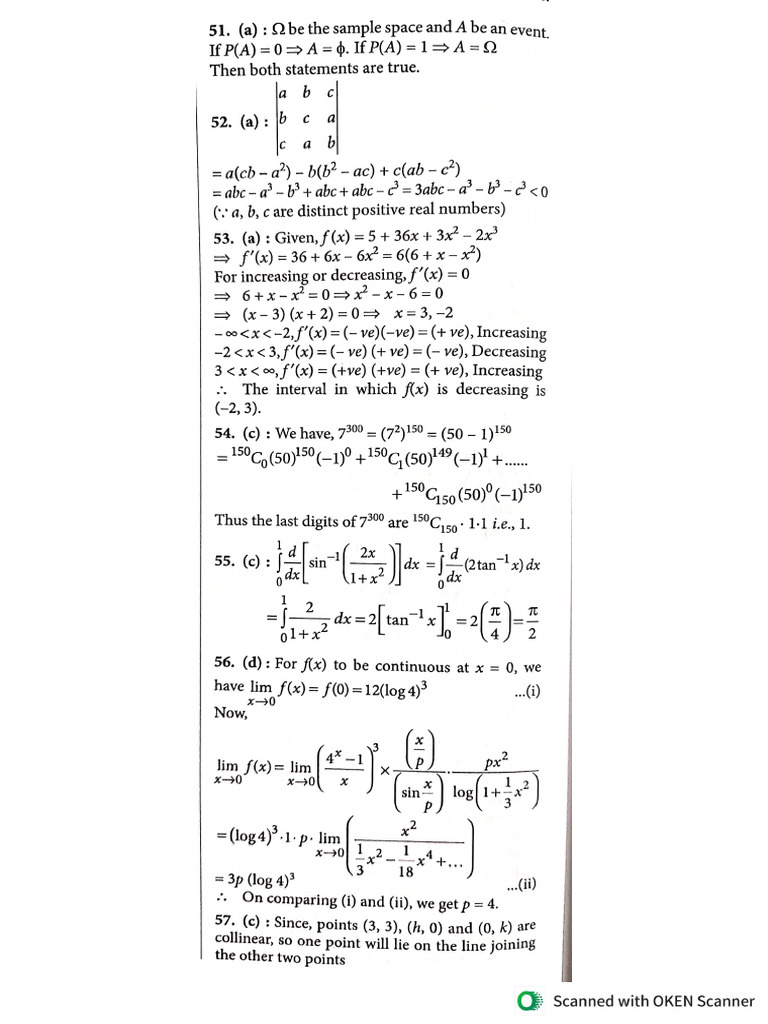 51. (a) : Ω be the sample space and A be an event.
If P(A) = 0 ⇒ A = ϕ. If P(A) = 1 ⇒ A = Ω
Then both statements are true.
52. (a) : |a b c|
|b c a|
|c a b|
= a(cb – a²) – b(b² – ac) + c(ab – c²)
= abc – a³ – b³ + abc + abc – c³ = 3abc – a³ – b³ – c³ < 0
(∵ a, b, c are distinct positive real numbers)
53. (a) : Given, f(x) = 5 + 36x + 3x² – 2x³
⇒ f′(x) = 36 + 6x – 6x² = 6(6 + x – x²)
For increasing or decreasing, f′(x) = 0
⇒ 6 + x – x² = 0 ⇒ x² – x – 6 = 0
⇒ (x – 3) (x + 2) = 0 ⇒ x = 3, –2
– ∞ < x < –2, f′(x) = (– ve)(–ve) = (+ ve), Increasing
–2 < x < 3, f′(x) = (– ve) (+ ve) = (– ve), Decreasing
3 < x < ∞, f′(x) = (+ve) (+ve) = (+ ve), Increasing
∴ The interval in which f(x) is decreasing is
(–2, 3).
54. (c) : We have, 7³⁰⁰ = (7²)¹⁵⁰ = (50 – 1)¹⁵⁰
= ¹⁵⁰C₀(50)¹⁵⁰(–1)⁰ + ¹⁵⁰C₁(50)¹⁴⁹(–1)¹ + ......
+ ¹⁵⁰C₁₅₀(50)⁰(–1)¹⁵⁰
Thus the last digits of 7³⁰⁰ are ¹⁵⁰C₁₅₀ · 1·1 i.e., 1.
55. (c) : ∫₀¹ d/dx [sin⁻¹(2x/(1+x²))] dx = ∫₀¹ d/dx (2tan⁻¹x) dx
= ∫₀¹ 2/(1+x²) dx = 2[tan⁻¹x]₀¹ = 2(π/4) = π/2
56. (d) : For f(x) to be continuous at x = 0, we
have lim x→0 f(x) = f(0) = 12(log 4)³ ...(i)
Now,
lim x→0 f(x) = lim x→0 ((4ˣ – 1)/x)³ × (x/p)/(sin x/p) · px²/log(1 + 1/3 x²)
= (log 4)³ · 1 · p · lim x→0 (x²/(1/3 x² – 1/18 x⁴ + ...))
= 3p (log 4)³ ...(ii)
∴ On comparing (i) and (ii), we get p = 4.
57. (c) : Since, points (3, 3), (h, 0) and (0, k) are
collinear, so one point will lie on the line joining
the other two points
Scanned with OKEN Scanner